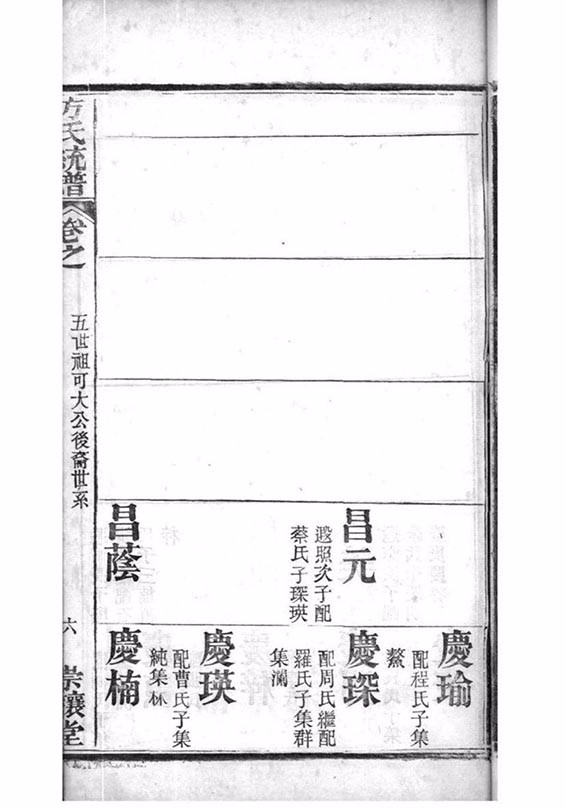 昌元
遐照次子配
蔡氏子琛瑛
昌蔭
慶瑜
配程氏子集
鰲
慶琛
配周氏繼配
羅氏子集群
集瀾
慶瑛
配曹氏子集
純集林
慶楠
方氏統譜
卷之
五世祖可大公後裔世系
六
崇讓堂